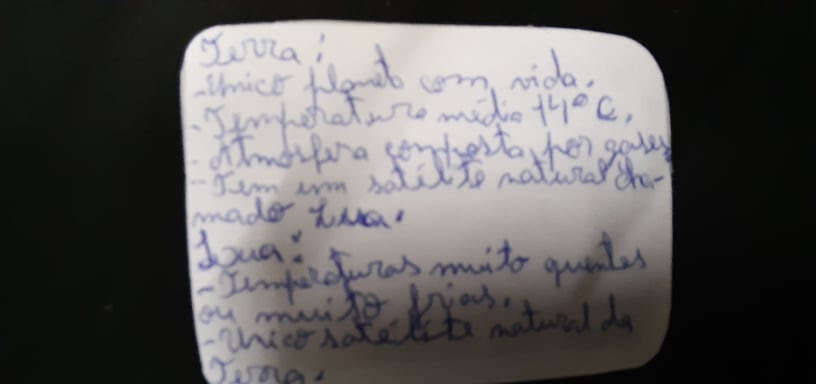 Terra:
-Unico planeta com vida.
-Temperatura média 14° C.
-Atmosfera composta por gases
-Tem um satélite natural cha-
mado Lua.
Lua:
-Temperaturas muito quentes
ou muito frias.
-Unico satélite natural da
Terra.